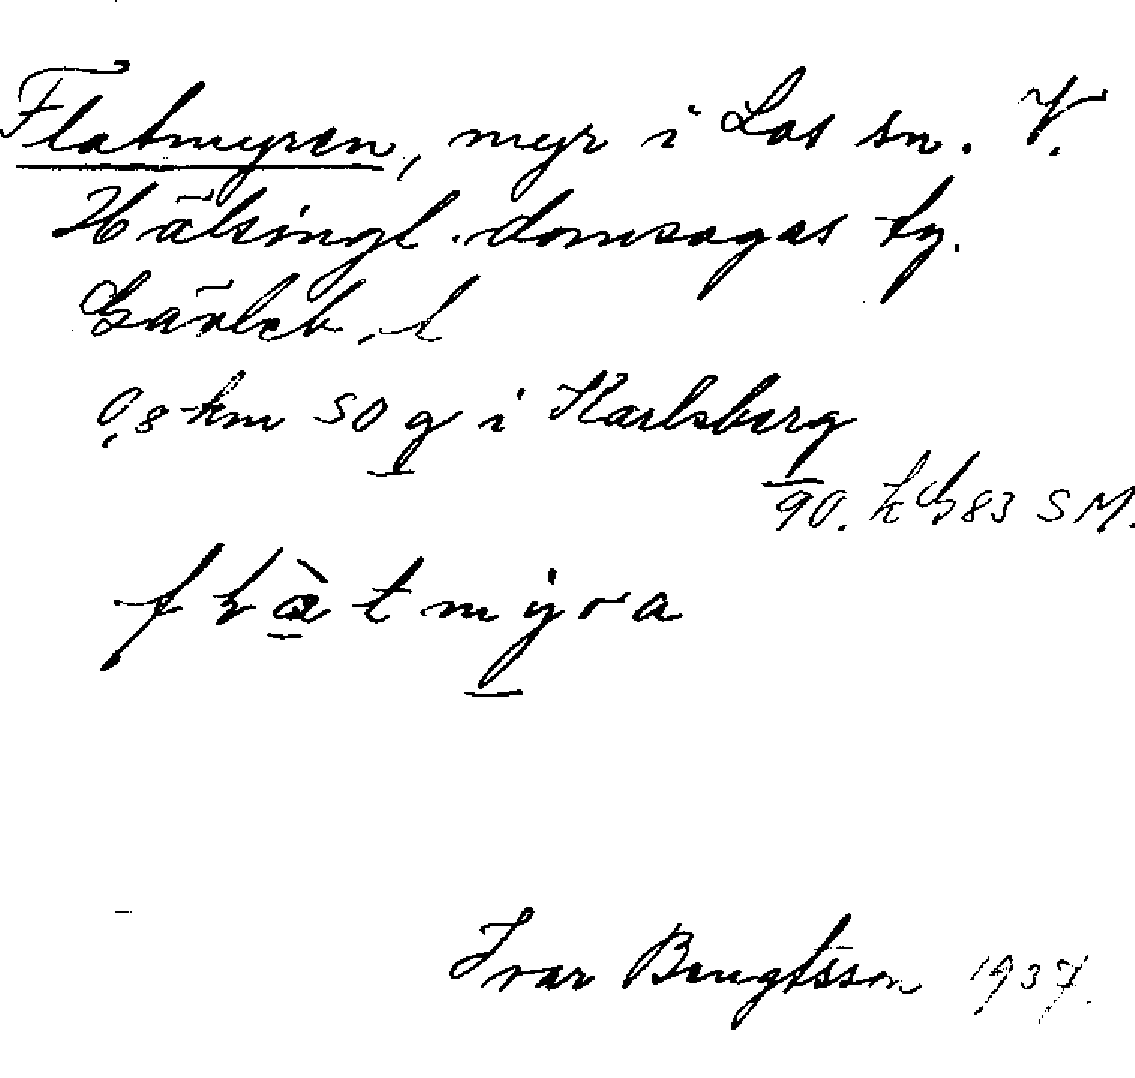 Flatmyren, myr i Los sn. V.
Hälsingl. domsagas tg.
Gävleb. l
0,8 km SO g i Karlsberg
90. kG83 SM.
flàtmyra
Ivar Bengtsson 1937.